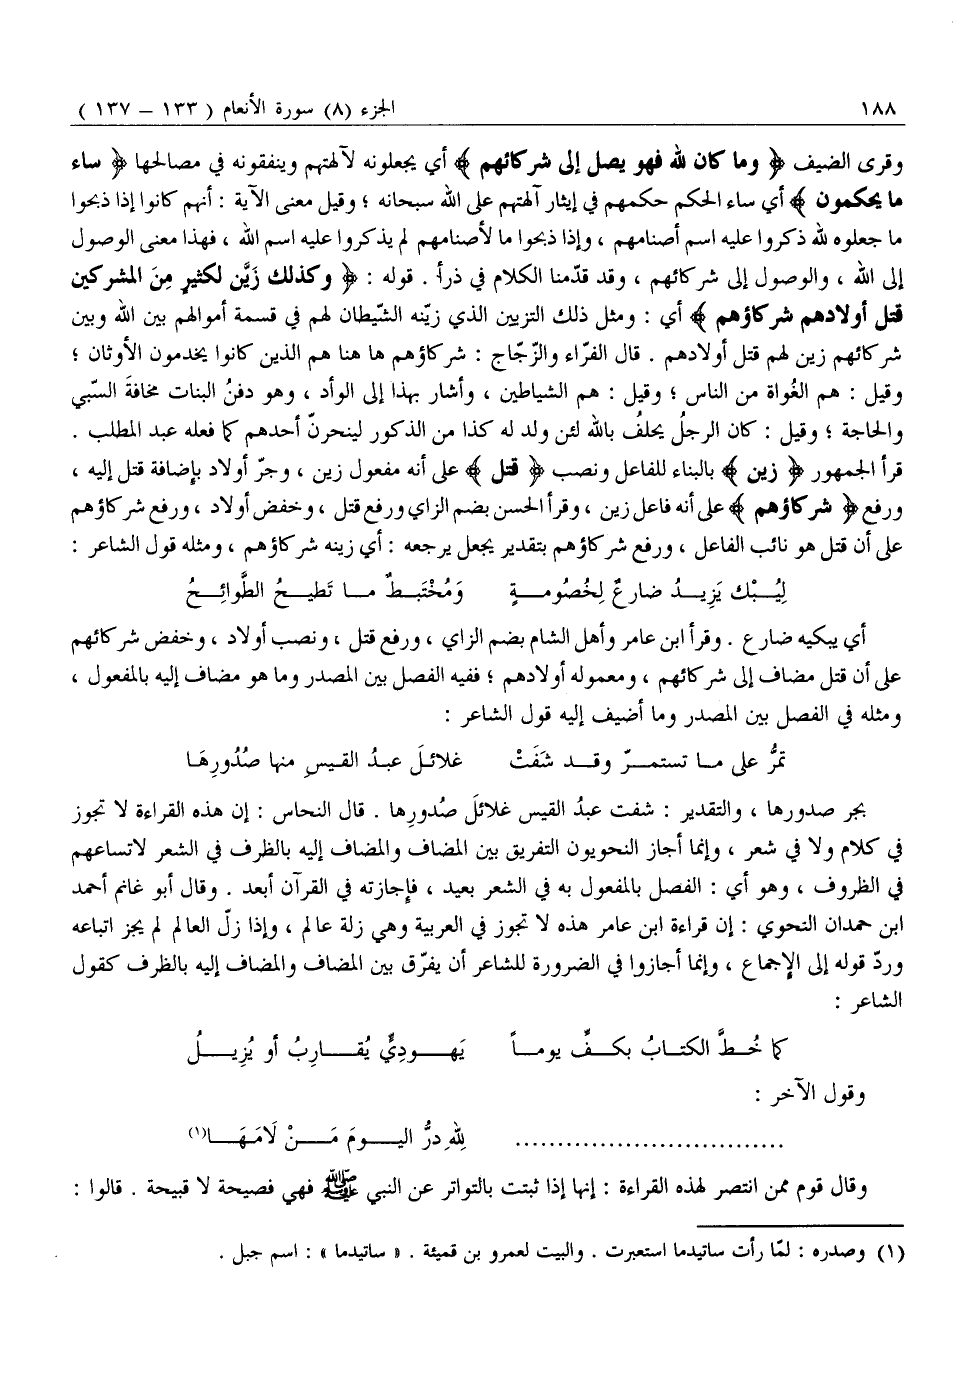 ١٨٨ الجزء (٨) سورة الأنعام ( ١٣٣ – ١٣٧ )
وقرى الضيف ﴿ وما كان لله فهو يصل إلى شركائهم ﴾ أي يجعلونه لآلهتهم وينفقونه في مصالحها ﴿ ساء
ما يحكمون ﴾ أي ساء الحكم حكمهم في إيثار آلهتهم على الله سبحانه ؛ وقيل معنى الآية : أنهم كانوا إذا ذبحوا
ما جعلوه لله ذكروا عليه اسم أصنامهم ، وإذا ذبحوا ما لأصنامهم لم يذكروا عليه اسم الله ، فهذا معنى الوصول
إلى الله ، والوصول إلى شركائهم ، وقد قدّمنا الكلام في ذرأ . قوله : ﴿ وكذلك زَيَّن لكثيرٍ مِنَ المشركين
قتل أولادهم شركاؤهم ﴾ أي : ومثل ذلك التزيين الذي زيّنه الشّيطان لهم في قسمة أموالهم بين الله وبين
شركائهم زين لهم قتل أولادهم . قال الفرّاء والزّجّاج : شركاؤهم ها هنا هم الذين كانوا يخدمون الأوثان ؛
وقيل : هم الغُواة من الناس ؛ وقيل : هم الشياطين ، وأشار بهذا إلى الوأد ، وهو دفنُ البنات مخافةَ السّبي
والحاجة ؛ وقيل : كان الرجلُ يحلفُ بالله لئن ولد له كذا من الذكور لينحرنّ أحدهم كما فعله عبد المطلب .
قرأ الجمهور ﴿ زين ﴾ بالبناء للفاعل ونصب ﴿ قتل ﴾ على أنه مفعول زين ، وجرّ أولاد بإضافة قتل إليه ،
ورفع ﴿ شركاؤهم ﴾ على أنه فاعل زين ، وقرأ الحسن بضم الزاي ورفع قتل ، وخفض أولاد ، ورفع شركاؤهم
على أن قتل هو نائب الفاعل ، ورفع شركاؤهم بتقدير يجعل يرجعه : أي زينه شركاؤهم ، ومثله قول الشاعر :
لِيُبْك يَزِيدُ ضارعٌ لِخُصُومةٍ وَمُخْتَبطٌ مما تَطيحُ الطَّوائِحُ
أي يبكيه ضارع . وقرأ ابن عامر وأهل الشام بضم الزاي ، ورفع قتل ، ونصب أولاد ، وخفض شركائهم
على أن قتل مضاف إلى شركائهم ، ومعموله أولادهم ؛ ففيه الفصل بين المصدر وما هو مضاف إليه بالمفعول ،
ومثله في الفصل بين المصدر وما أضيف إليه قول الشاعر :
تمرُّ على ما تستمرّ وقد شَفَتْ غلائلَ عبدُ القيسِ منها صُدُورِهَا
بجر صدورها ، والتقدير : شفت عبدُ القيس غلائلَ صُدورِها . قال النحاس : إن هذه القراءة لا تجوز
في كلام ولا في شعر ، وإنما أجاز النحويون التفريق بين المضاف والمضاف إليه بالظرف في الشعر لاتساعهم
في الظروف ، وهو أي : الفصل بالمفعول به في الشعر بعيد ، فإجازته في القرآن أبعد . وقال أبو غانم أحمد
ابن حمدان النحوي : إن قراءة ابن عامر هذه لا تجوز في العربية وهي زلة عالم ، وإذا زلّ العالم لم يجز اتباعه
وردّ قوله إلى الإجماع ، وإنما أجازوا في الضرورة للشاعر أن يفرّق بين المضاف والمضاف إليه بالظرف كقول
الشاعر :
كما خُطَّ الكتابُ بكفِّ يوماً يَهوديٍّ يُقاربُ أو يُزِيلُ
وقول الآخر :
................................ لله درُّ اليومَ مَنْ لَامَهَا(١)
وقال قوم ممن انتصر لهذه القراءة : إنها إذا ثبتت بالتواتر عن النبي ﷺ فهي فصيحة لا قبيحة . قالوا :
(١) وصدره : لمّا رأت ساتيدما استعبرت . والبيت لعمرو بن قميئة . « ساتيدما » : اسم جبل .